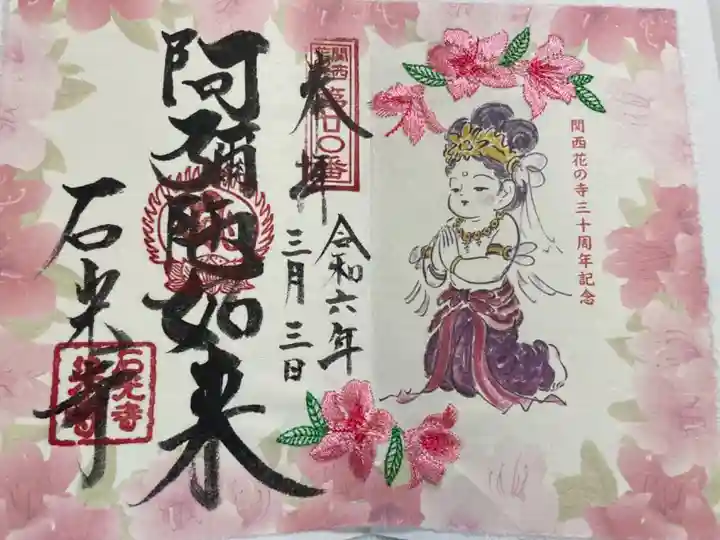 関西花の寺三十周年記念
関西花の寺
第廿〇番
奉拝
令和六年
三月三日
阿彌陀如来
石光寺
石光寺